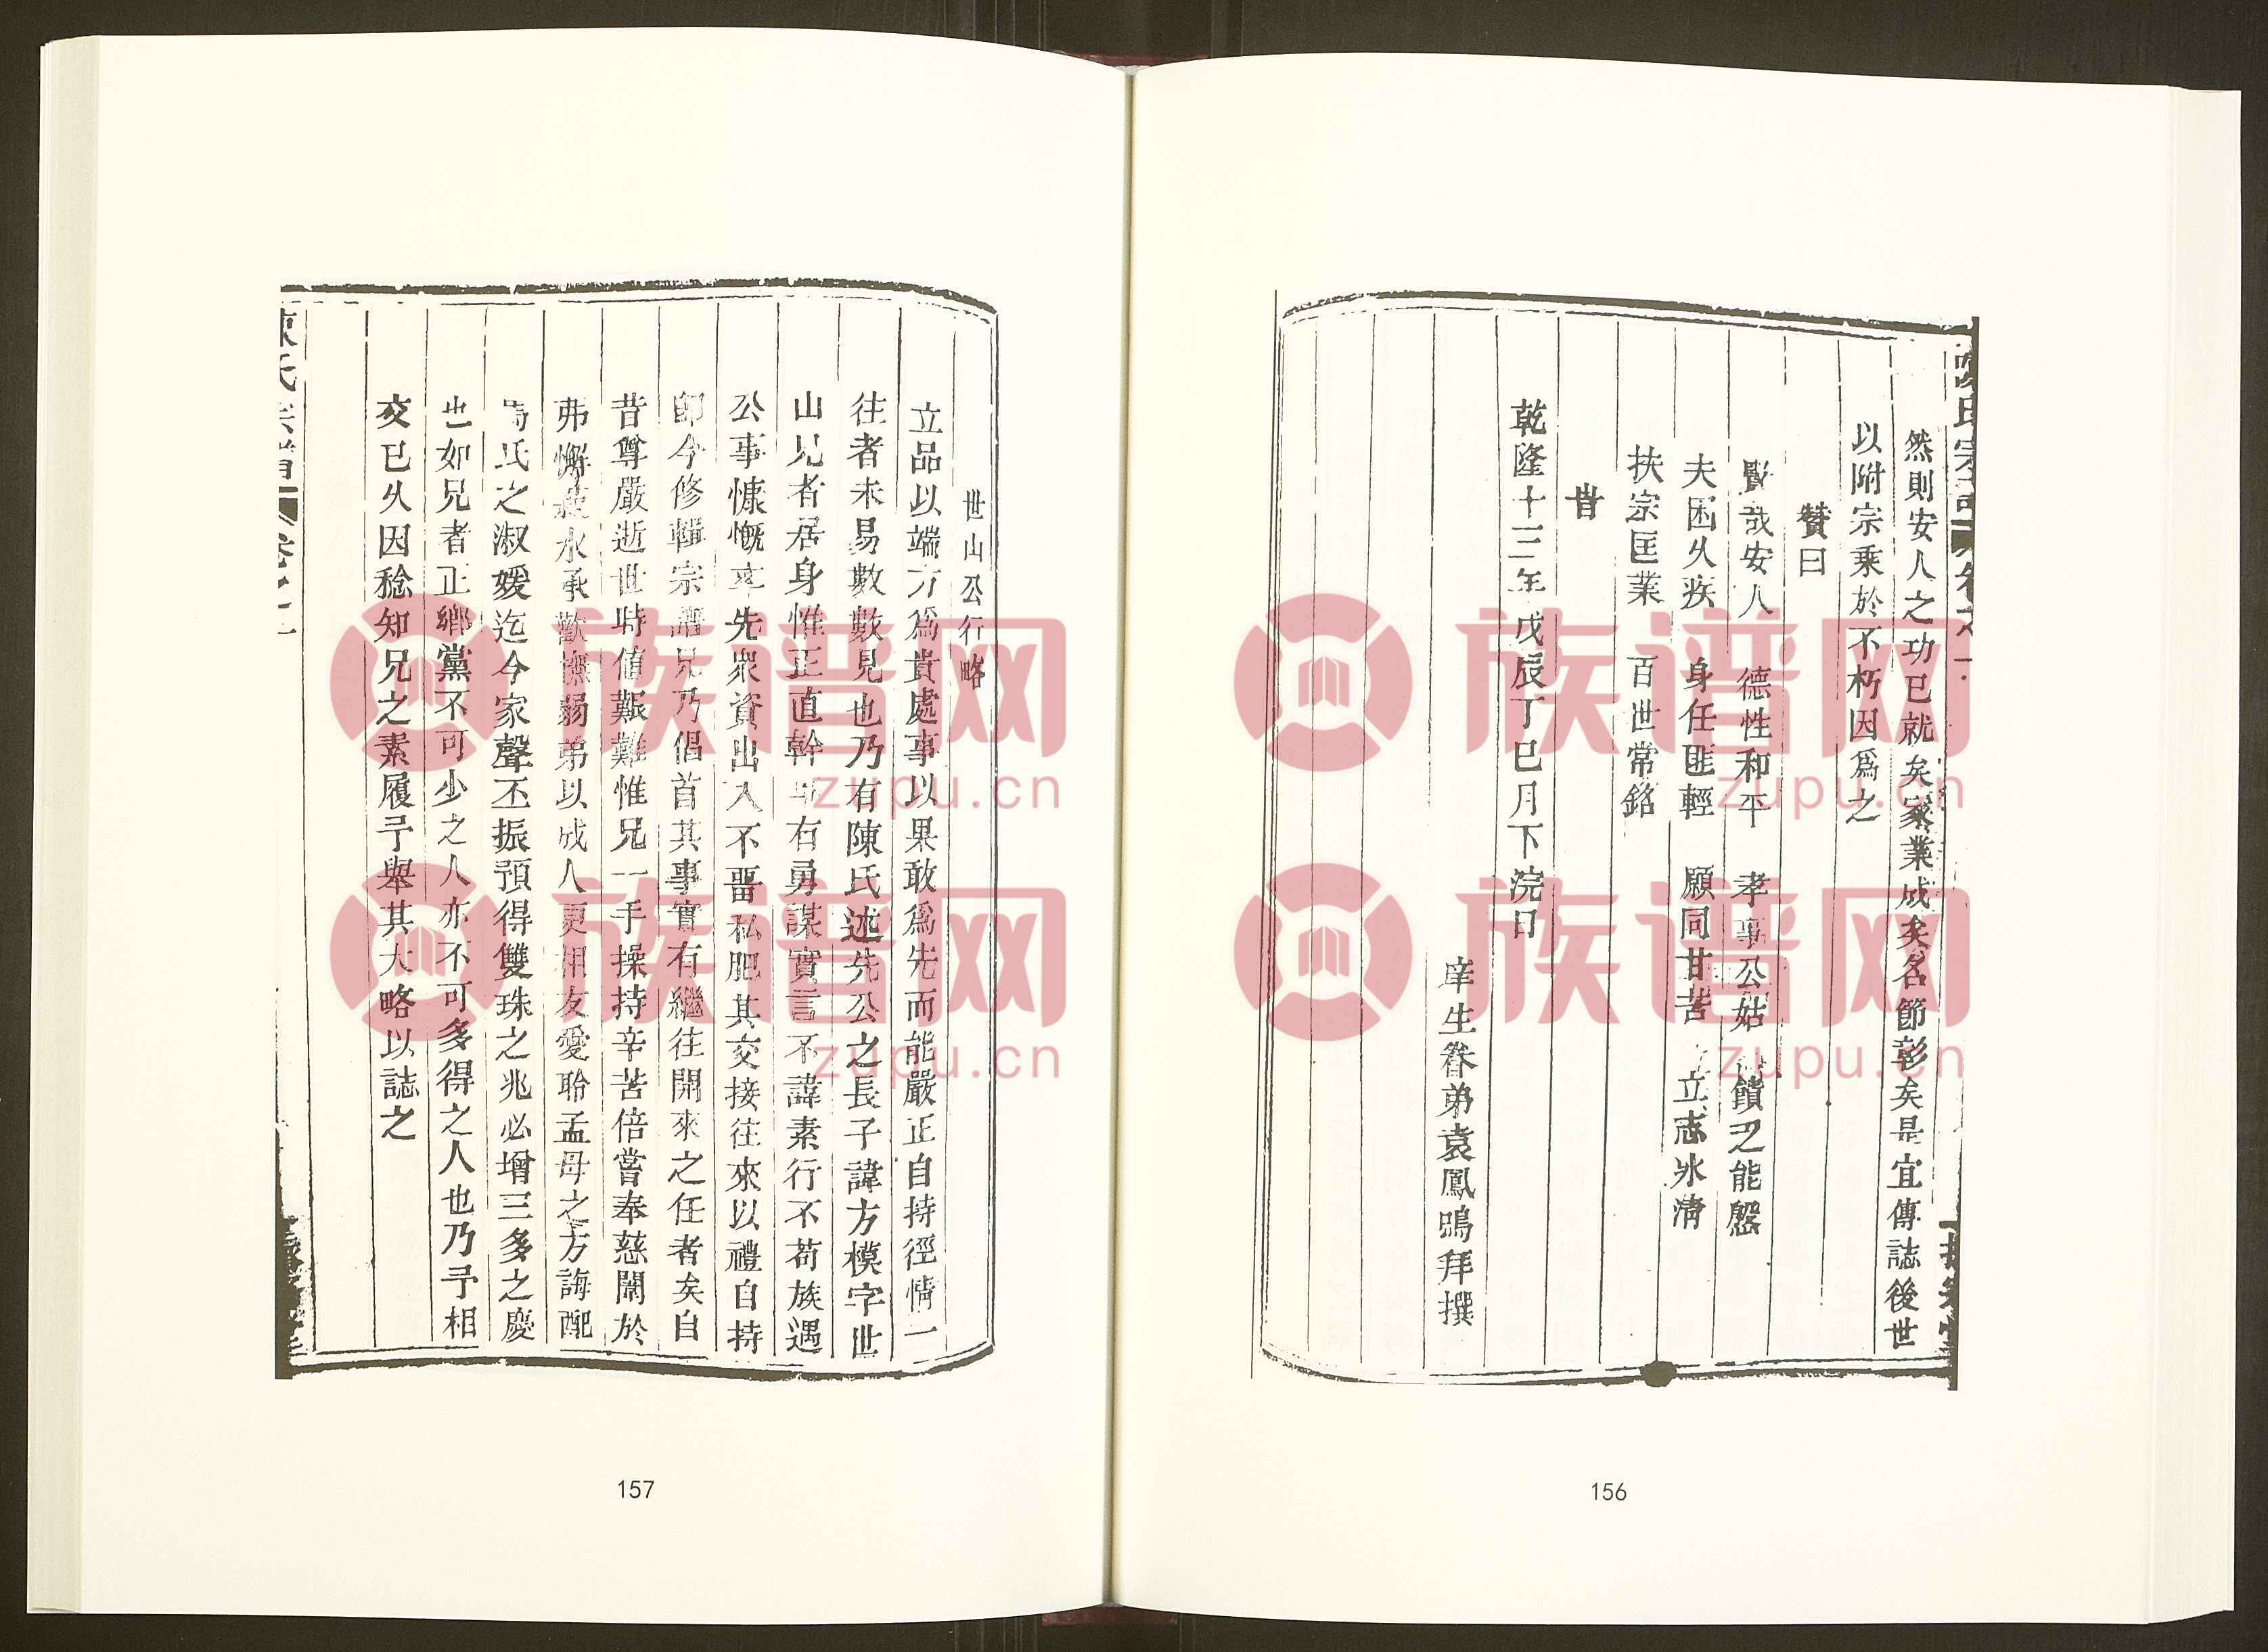 然則安人之功已就矣家業成矣名節彰矣是宜傳誌後世
以附宗乘於不朽因爲之
贊曰
賢哉安人 德性和平 孝事公姑 饋之能慇
夫困久疾 身任匪輕 願同甘苦 立志氷清
扶宗匡業 百世常銘
旹
乾隆十三年戊辰丁巳月下浣日
庠生眷弟袁鳳鳴拜撰
156
世山公行略
立品以端方爲貴處事以果敢爲先而能嚴正自持徑情一
往者未易數數見也乃有陳氏述先公之長子諱方模字世
山兄者居身惟正直幹事有勇謀實言不諱素行不苟族遇
公事慷慨率先眾資出入不畱私肥其交接往來以禮自持
即今修輯宗譜兄乃倡首其事實有繼往開來之任者矣自
昔尊嚴逝世時值艱難惟兄一手操持辛苦倍嘗奉慈闈於
弗懈菽水承歡撫弱弟以成人更相友愛聆孟母之方誨配
馬氏之淑媛迄今家聲丕振預得雙珠之兆必增三多之慶
也如兄者正鄉黨不可少之人亦不可多得之人也乃予相
交已久因稔知兄之素履予舉其大略以誌之
陳氏宗譜 卷之一
157
族谱网
zupu.cn
族谱网
zupu.cn
族谱网
zupu.cn
族谱网
zupu.cn